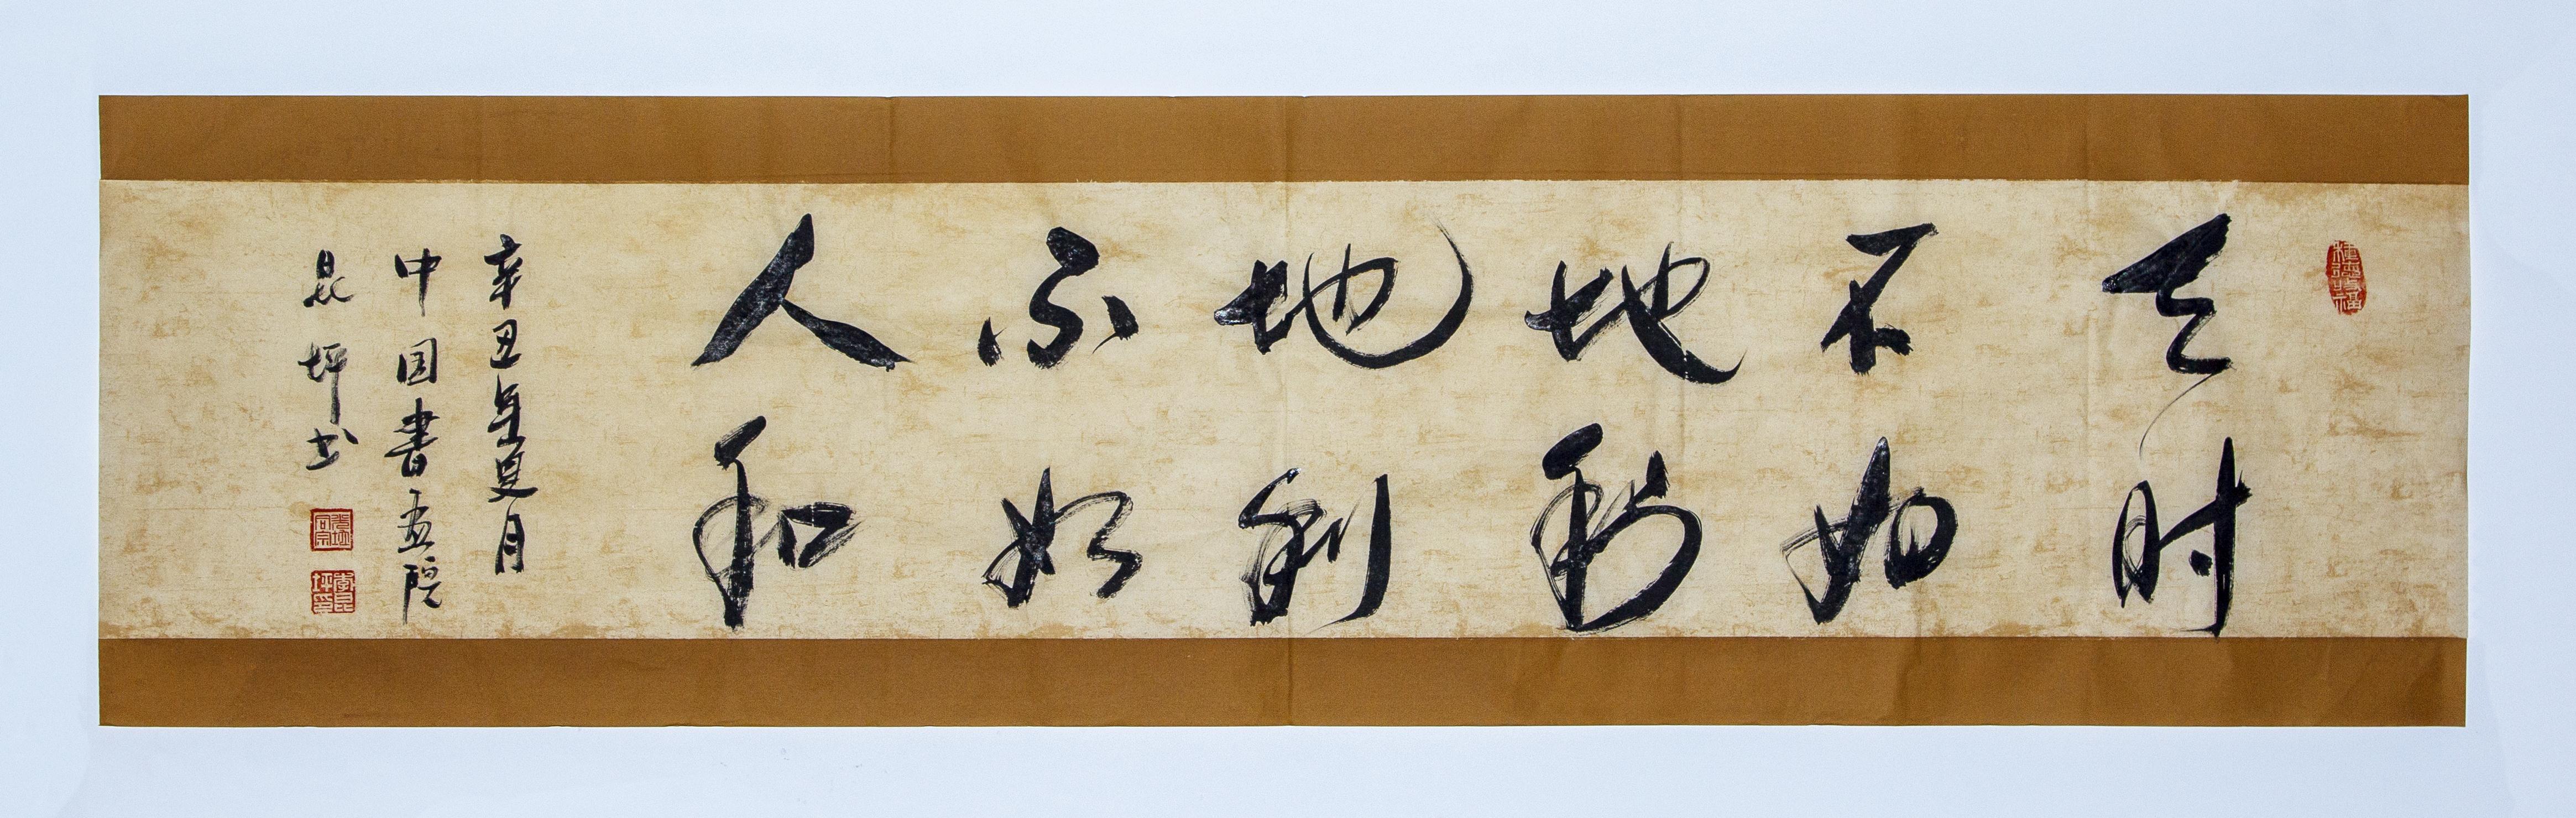 天时
不如
地利
地利
不如
人和
辛丑年夏月
中国書画院
昆坪书